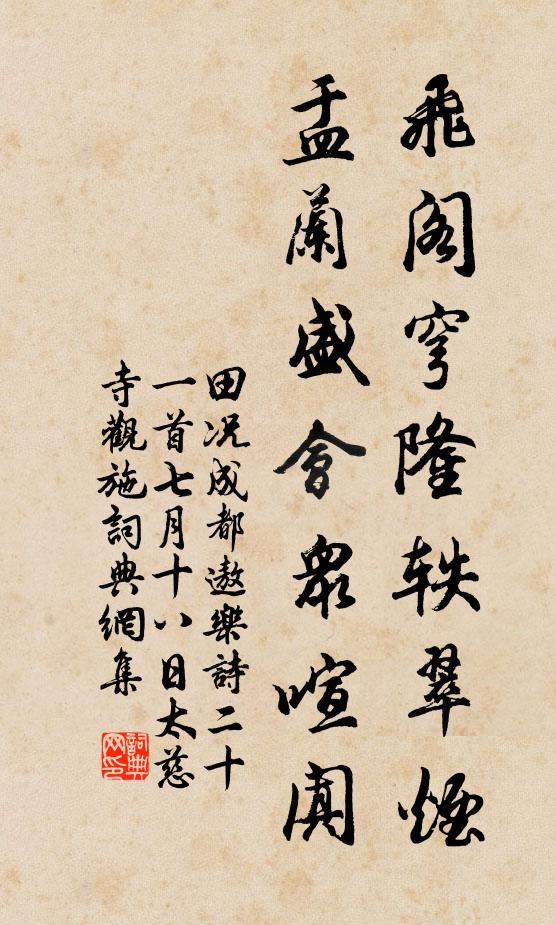 飛阁穹隆轶翠煙
盂蘭盛會眾喧闐
田况成都遨樂詩二十
一首七月十八日太慈
寺觀施詞典網集
詞典网印